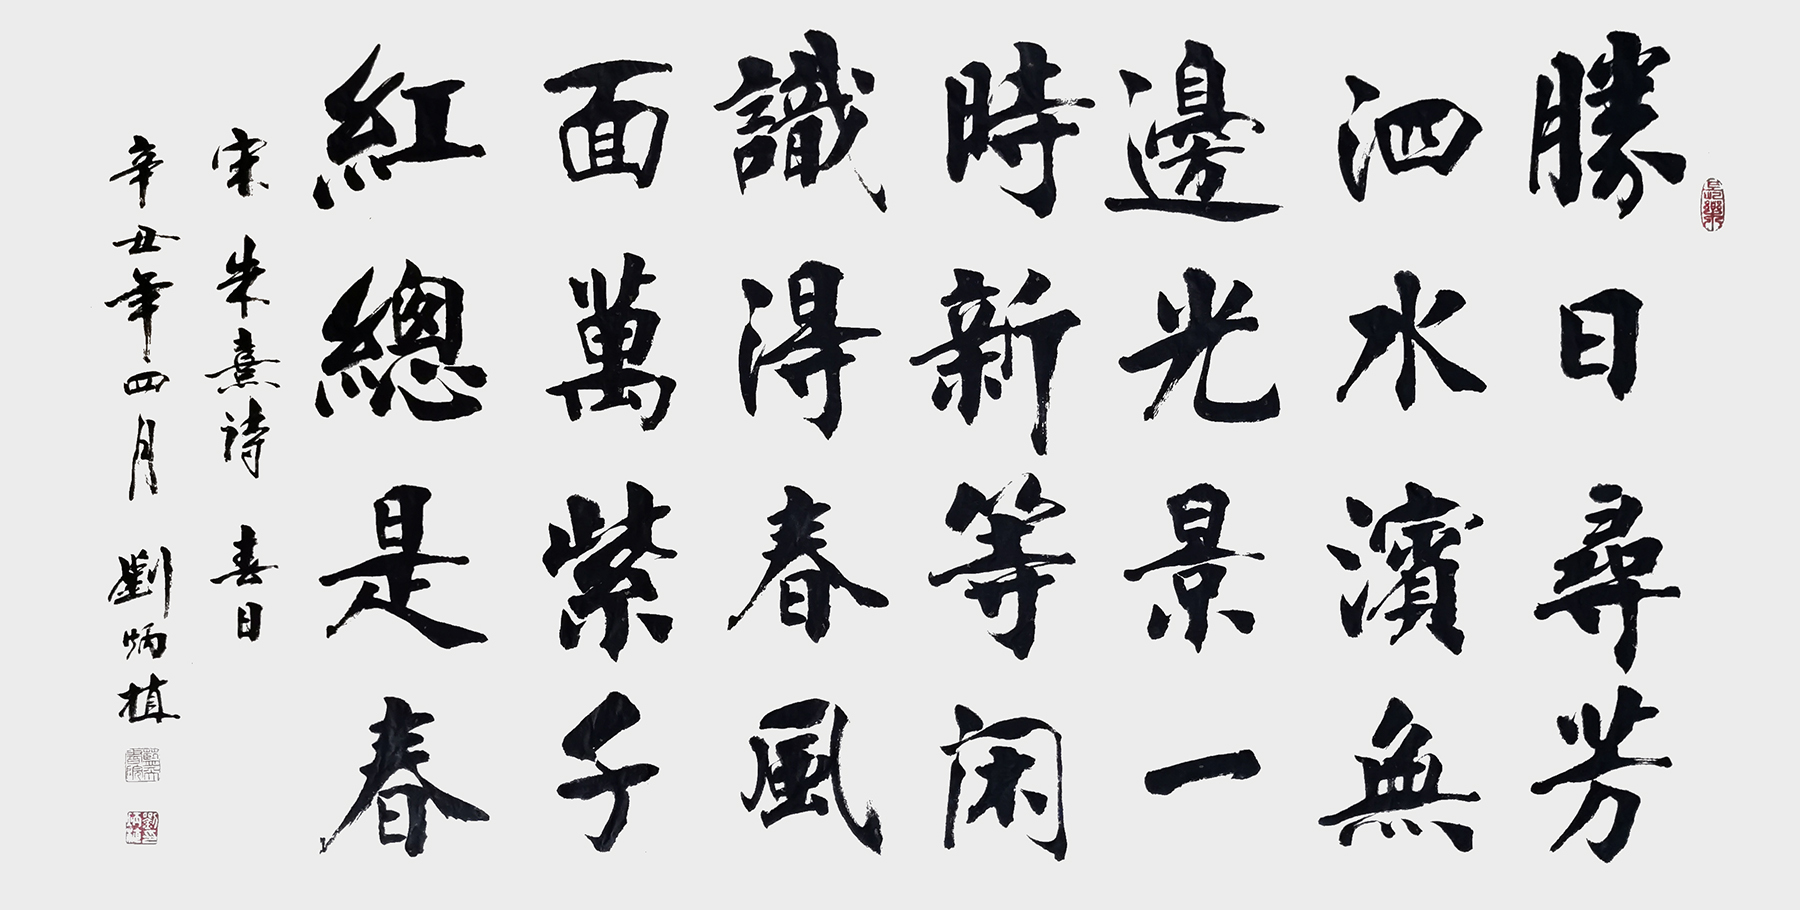 勝日尋芳
泗水濱無
邊光景一
時新等闲
識得春風
面萬紫千
紅總是春
宋 朱熹诗 春日
辛丑年四月 劉炳植